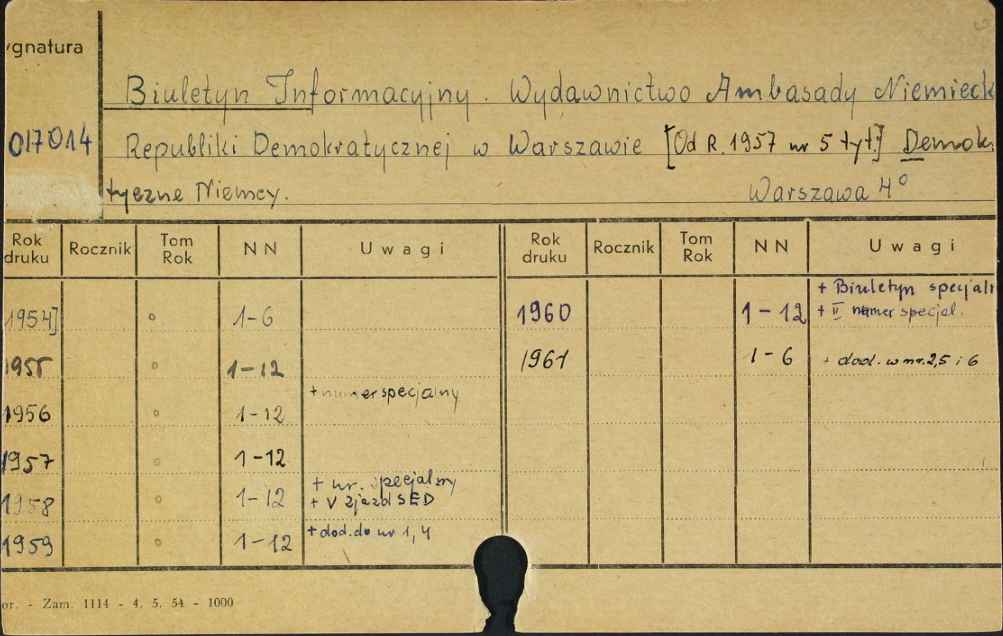 ygnatura
Biuletyn Informacyjny. Wydawnictwo Ambasady Niemieck
017014 Republiki Demokratycznej w Warszawie [Od R. 1957 nr 5 tyt.] Demok
tyczne Niemcy. Warszawa 4°
Rok druku Rocznik Tom Rok NN Uwagi Rok druku Rocznik Tom Rok NN Uwagi
+ Biuletyn specjaln
1954] o 1-6 1960 1-12 + II numer specjal.
1955 o 1-12 1961 1-6 + dod. w nr. 2,5 i 6
+ numer specjalny
1956 o 1-12
1957 o 1-12
+ nr. specjalny
1958 o 1-12 + V zjazd SED
1959 o 1-12 + dod. do nr 1,4
or. - Zam. 1114 - 4. 5. 54 - 1000